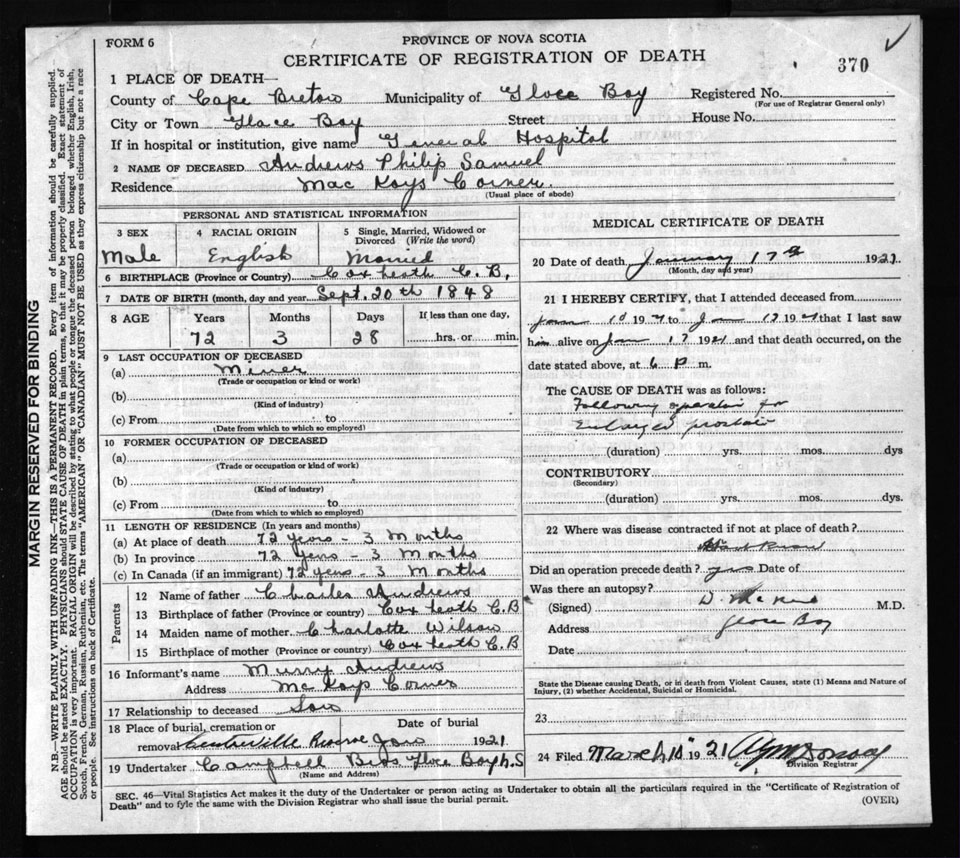 FORM 6
PROVINCE OF NOVA SCOTIA
CERTIFICATE OF REGISTRATION OF DEATH
370
1 PLACE OF DEATH—
County of Cape Breton Municipality of Glace Bay Registered No.
(For use of Registrar General only)
City or Town Glace Bay Street House No.
If in hospital or institution, give name General Hospital
2 NAME OF DECEASED Andrews Philip Samuel
Residence MacKays Corner
(Usual place of abode)
PERSONAL AND STATISTICAL INFORMATION
3 SEX 4 RACIAL ORIGIN 5 Single, Married, Widowed or
Divorced (Write the word)
Male English Married
6 BIRTHPLACE (Province or Country) Coxheath C.B.
7 DATE OF BIRTH (month, day and year) Sept. 20th 1848
8 AGE Years Months Days If less than one day,
72 3 28 hrs. or min.
9 LAST OCCUPATION OF DECEASED
(a) Miner
(Trade or occupation or kind or work)
(b)
(Kind of industry)
(c) From to
(Date from which to which so employed)
10 FORMER OCCUPATION OF DECEASED
(a)
(Trade or occupation or kind of work)
(b)
(Kind of industry)
(c) From to
(Date from which to which so employed)
11 LENGTH OF RESIDENCE (In years and months)
(a) At place of death 72 years - 3 Months
(b) In province 72 years - 3 Months
(c) In Canada (if an immigrant) 72 years - 3 Months
Parents
12 Name of father Charles Andrews
13 Birthplace of father (Province or country) Coxheath C.B
14 Maiden name of mother Charlotte Wilson
15 Birthplace of mother (Province or country) Coxheath C.B
16 Informant's name Murry Andrews
Address McKays Corner
17 Relationship to deceased Son
18 Place of burial, cremation or Date of burial
removal Centreville Reserve Jan 1921
19 Undertaker Campbell Bros Glace Bay N.S
(Name and Address)
MEDICAL CERTIFICATE OF DEATH
20 Date of death January 17th 1921
(Month, day and year)
21 I HEREBY CERTIFY, that I attended deceased from
Jan 10 1921 to Jan 17 1921 that I last saw
him alive on Jan 17 1921 and that death occurred, on the
date stated above, at 6 p m.
The CAUSE OF DEATH was as follows:
Following operation for
Enlarged prostate
(duration) yrs. mos. dys
CONTRIBUTORY
(Secondary)
(duration) yrs. mos. dys.
22 Where was disease contracted if not at place of death?
Did an operation precede death? yes Date of
Was there an autopsy?
(Signed) M.D.
Address Glace Bay
Date
State the Disease causing Death, or in death from Violent Causes, state (1) Means and Nature of
Injury, (2) whether Accidental, Suicidal or Homicidal.
23
24 Filed March 10" 1921
Division Registrar
SEC. 46—Vital Statistics Act makes it the duty of the Undertaker or person acting as Undertaker to obtain all the particulars required in the "Certificate of Registration of
Death" and to fyle the same with the Division Registrar who shall issue the burial permit.
(OVER)
MARGIN RESERVED FOR BINDING
N.B.—WRITE PLAINLY WITH UNFADING INK—THIS IS A PERMANENT RECORD. Every item of information should be carefully supplied.
AGE should be stated EXACTLY. PHYSICIANS should STATE CAUSE OF DEATH in plain terms, so that it may be properly classified. Exact statement of
OCCUPATION is very important. RACIAL ORIGIN will be described by stating to what people or tongue the deceased person belonged whether English, Irish,
Scotch, French, German, Russian, Ruthenian, etc. The terms "AMERICAN" OR "CANADIAN" MUST NOT BE USED as they express citizenship but not a race
or people. See instructions on back of Certificate.